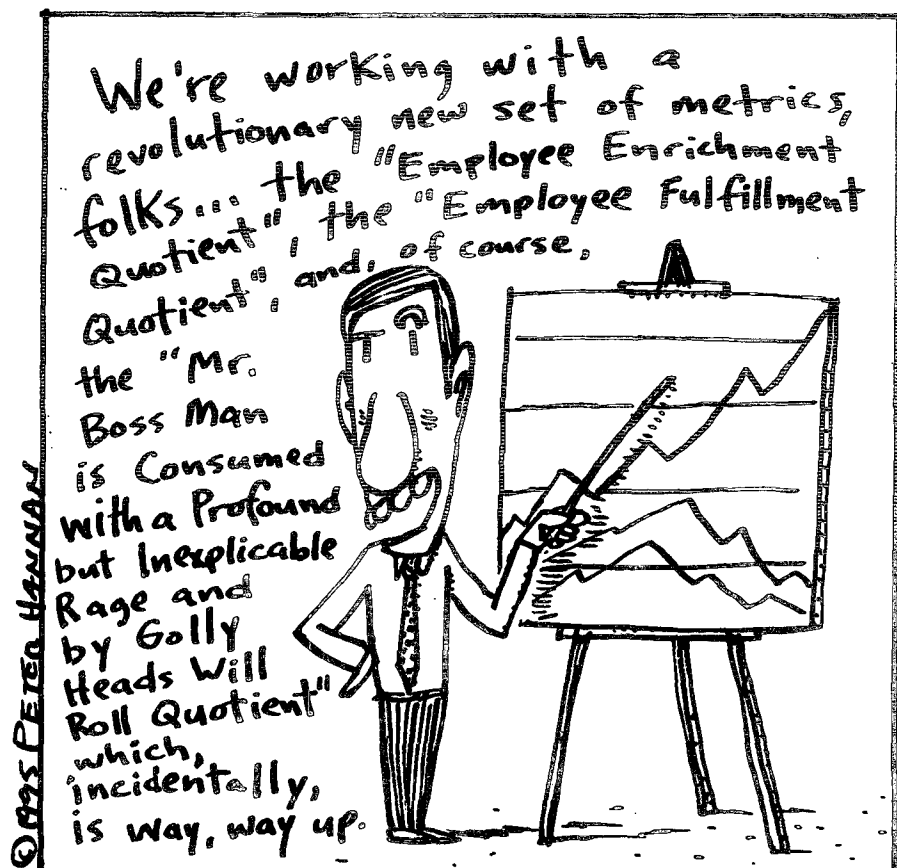 We're working with a
revolutionary new set of metrics,
folks... the "Employee Enrichment
Quotient", the "Employee Fulfillment
Quotient", and, of course,
the "Mr.
Boss Man
is Consumed
with a Profound
but Inexplicable
Rage and
by Golly
Heads Will
Roll Quotient"
which,
incidentally,
is way, way up.
©1995 PETER HANNAN